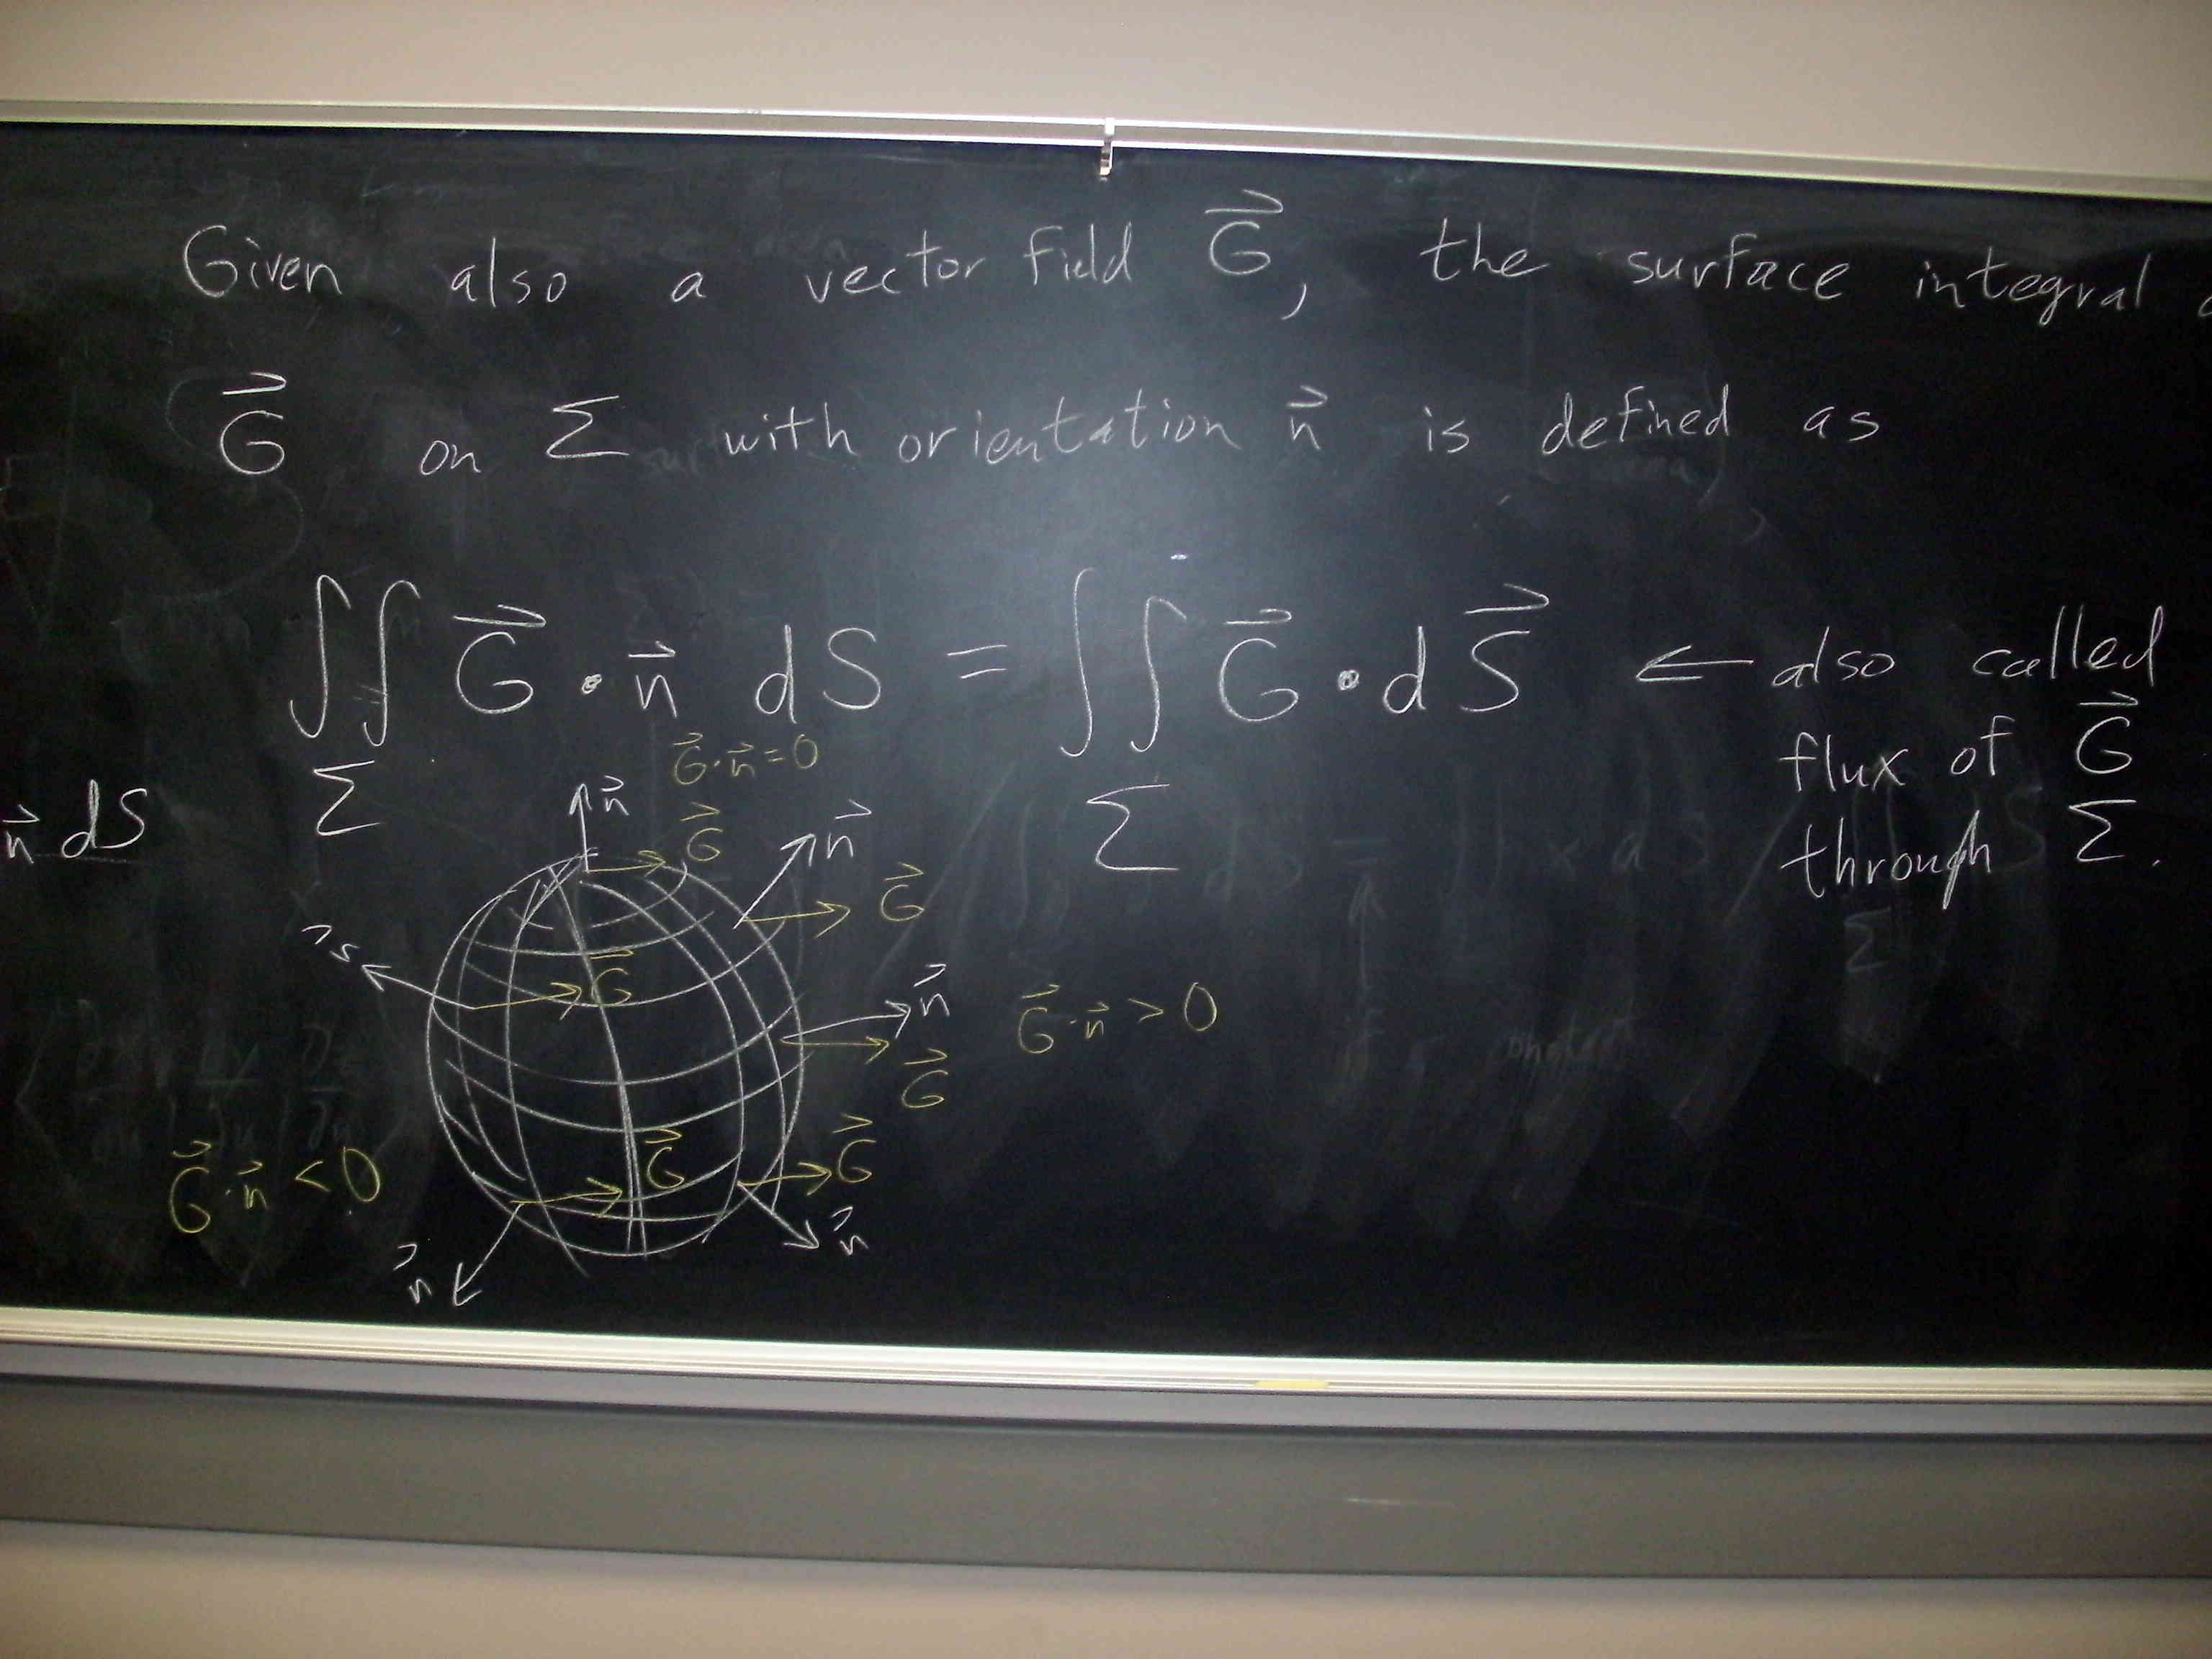 Given also a vector field G⃗, the surface integral
G⃗ on Σ with orientation n⃗ is defined as
∬ G⃗ · n⃗ dS = ∬ G⃗ · dS⃗ ← also called
Σ Σ
flux of G⃗
through Σ.
n⃗ dS
G⃗·n⃗=0
n⃗
G⃗
n⃗
G⃗
G⃗
n⃗
G⃗·n⃗ > 0
G⃗
G⃗
G⃗
G⃗·n⃗ < 0
n⃗
n⃗